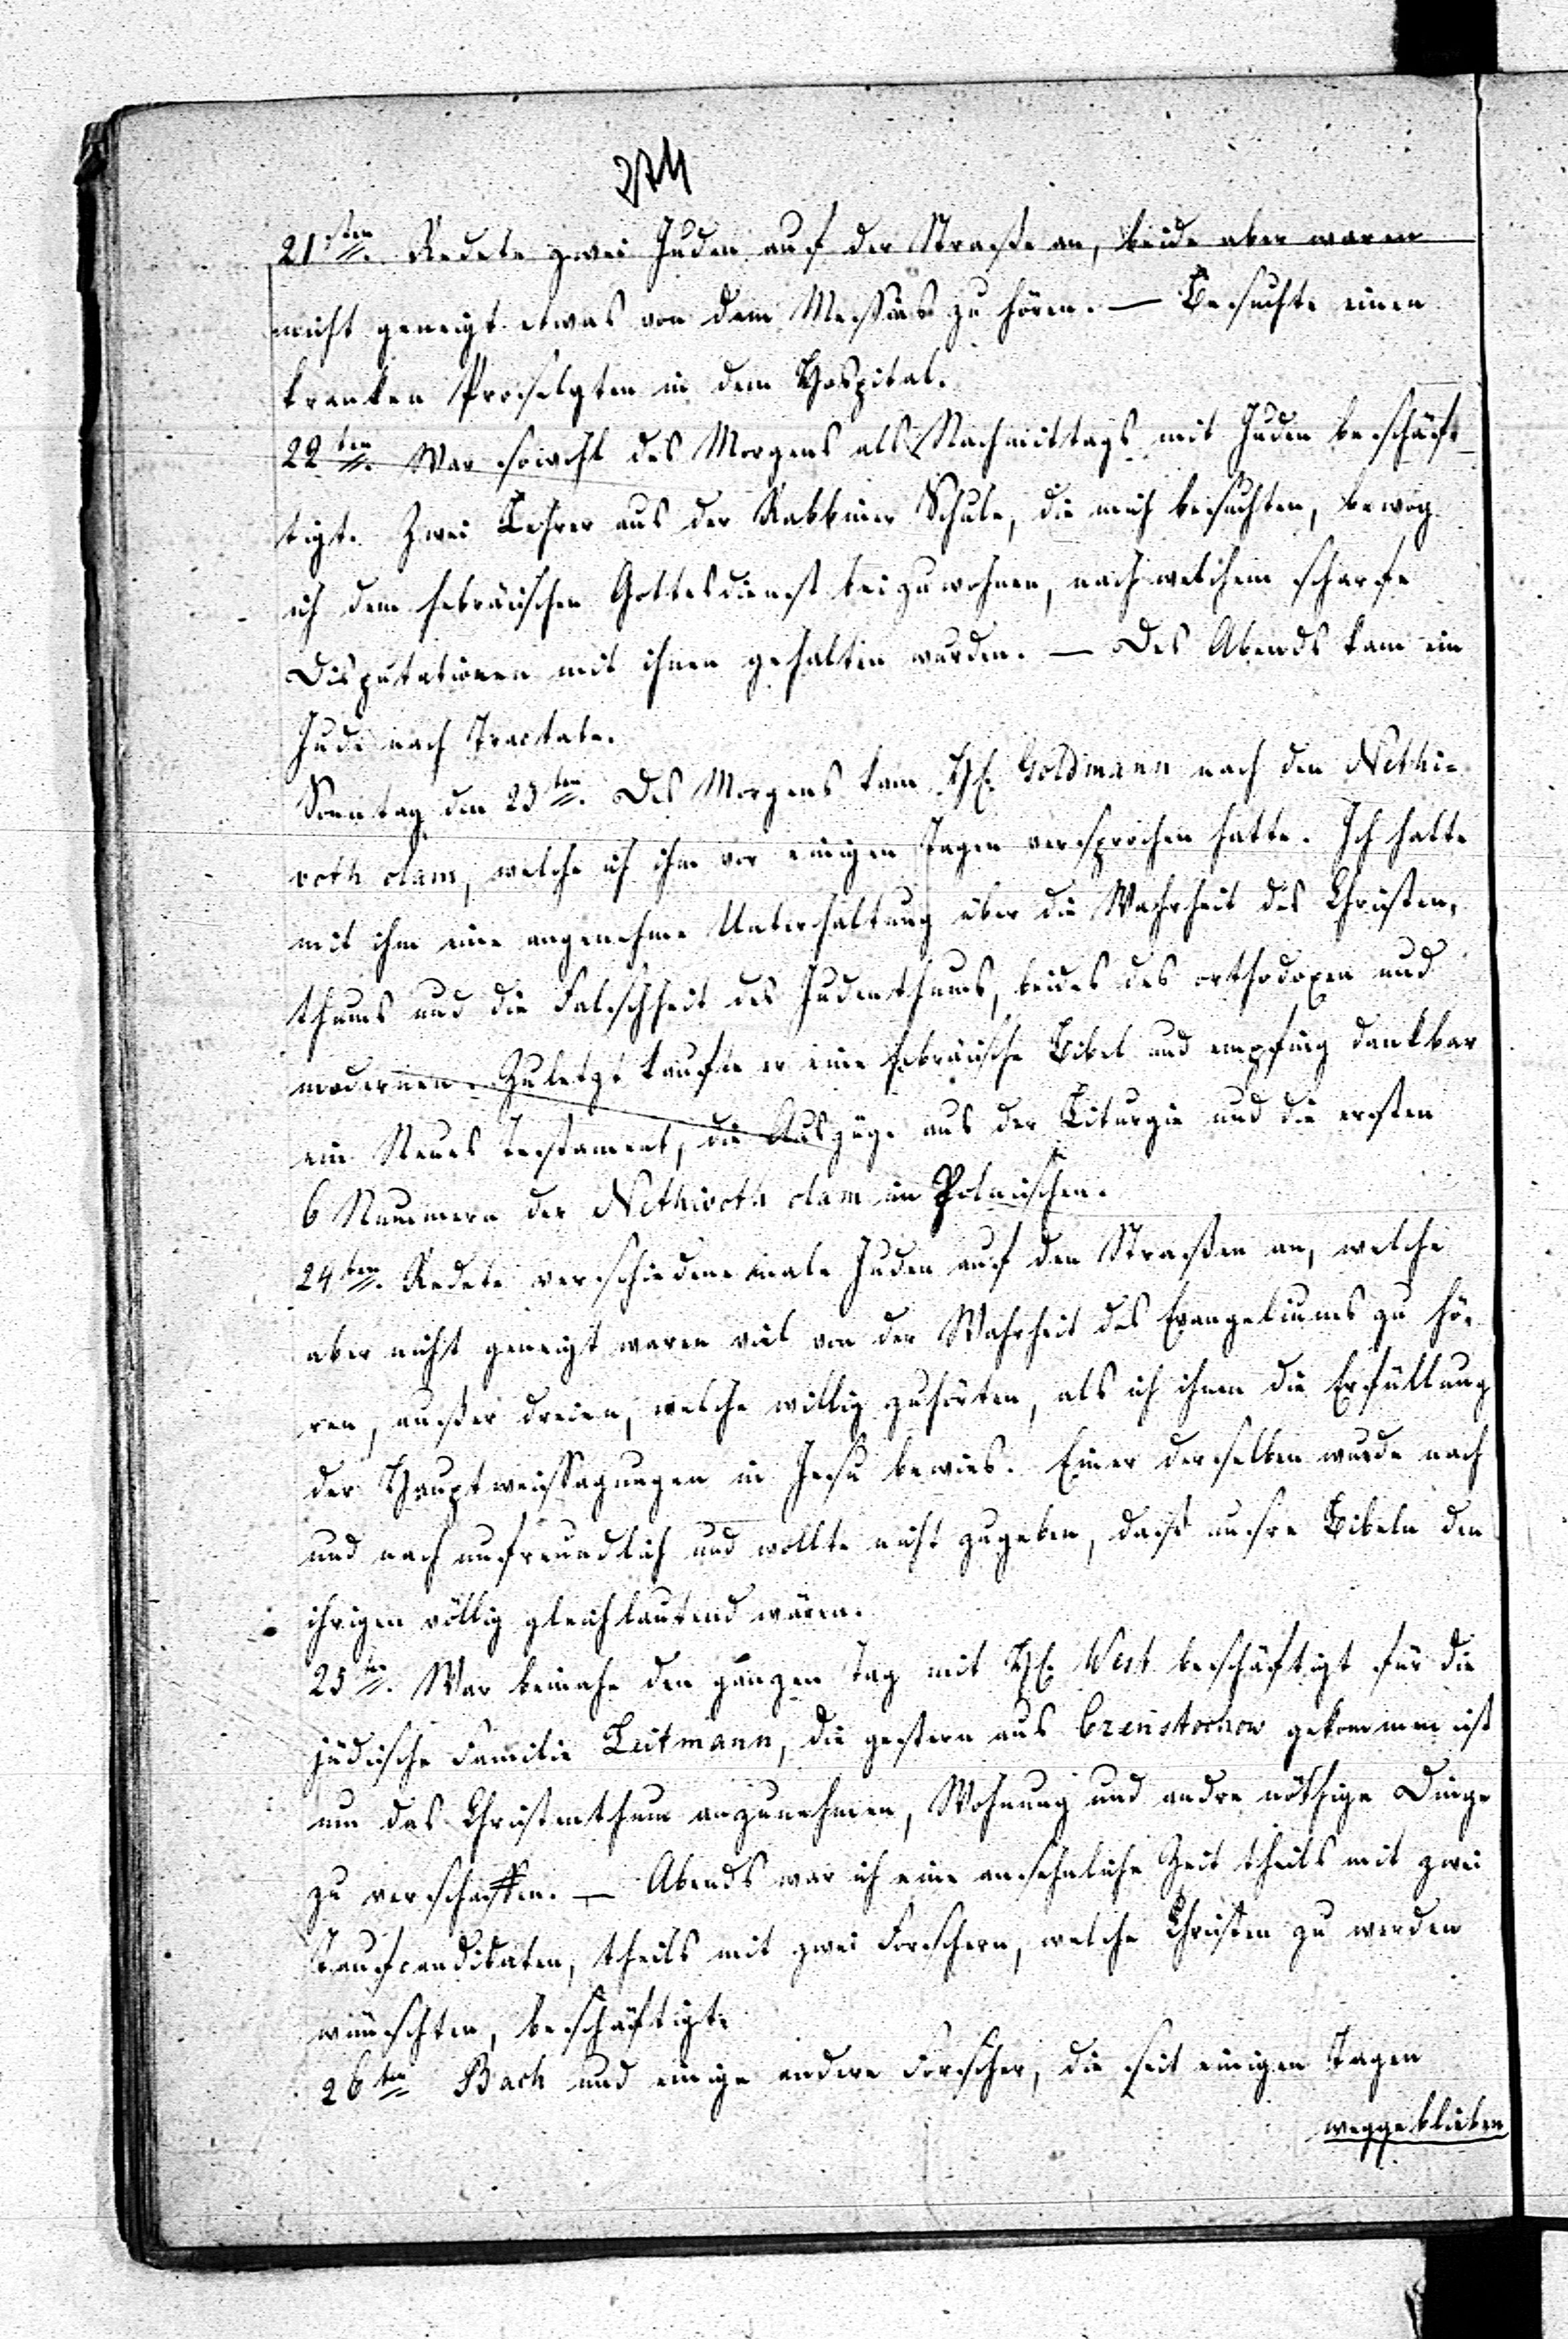 274
21sten. Redete zwei Juden auf der Straße an, beide aber waren
nicht geneigt etwas von dem Messias zu hören. — Besuchte einen
kranken Proselyten in dem Hospital.
22ten. War sowohl des Morgens als Nachmittags mit Juden beschäf-
tigt. Zwei Lehrer aus der Rabbiner Schule, die mich besuchten, bewog
ich dem hebräischen Gottesdienst beizuwohnen, nach welchem scharfe
Disputationen mit ihnen gehalten wurden. — Des Abends kam ein
Jude nach Tractate.
Sonntag den 23ten. Des Morgens kam H. Goldmann nach den Nethi-
voth olam, welche ich ihm vor einigen Tagen versprochen hatte. Ich hatte
mit ihm eine angenehme Unterhaltung über die Wahrheit des Christen-
thums und die Falschheit des Judenthums, beides des orthodoxen und
modernen. Zuletzt kaufte er eine hebräische Bibel und empfing dankbar
ein Neues Testament, die Auszüge aus der Liturgie und die ersten
6 Nummern der Nethivoth olam im Polnischen.
24ten. Redete verschiedene male Juden auf den Straßen an, welche
aber nicht geneigt waren viel von der Wahrheit des Evangeliums zu hö-
ren, außer dreien, welche willig zuhörten, als ich ihnen die Erfüllung
der Hauptweissagungen in Jesu bewies. Einer derselben wurde nach
und nach unfreundlich und wollte nicht zugeben, daß unsre Bibeln den
ihrigen völlig gleichlautend wären.
25ten. War beinahe den ganzen Tag mit H. West beschäftigt für die
jüdische Familie Leitmann, die gestern aus Czenstochow gekommen ist
um das Christenthum anzunehmen, Wohnung und andre nöthige Dinge
zu verschaffen. — Abends war ich eine ansehnliche Zeit theils mit zwei
Taufcandidaten, theils mit zwei Forschern, welche Christen zu werden
wünschten, beschäftigt.
26ten Bach und einige andere Forscher, die seit einigen Tagen
weggeblieben